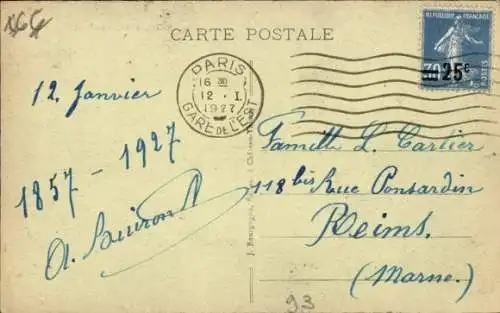 CARTE POSTALE
REPUBLIQUE FRANÇAISE
25c
POSTES
PARIS
16 30
12 · I
1927
GARE DE L'EST
12 Janvier
1857 - 1927
Famille L. Cartier
118 bis Rue Ponsardin
Reims.
(Marne.)
93